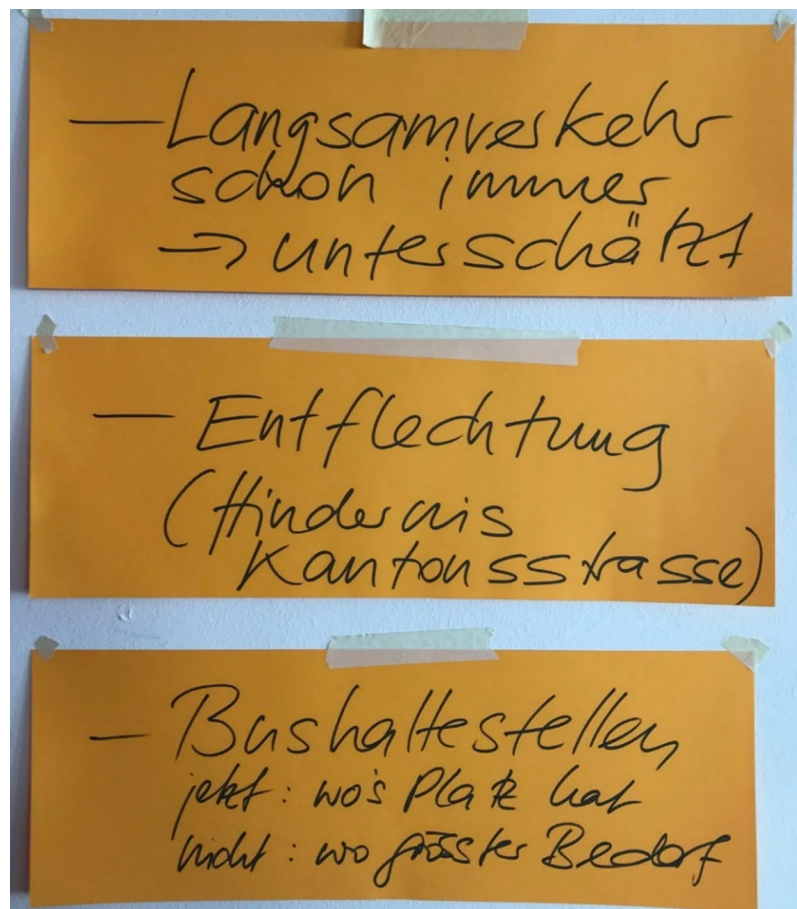 — Langsamverkehr
schon immer
→ unterschätzt
— Entflechtung
(Hindernis
Kantonsstrasse)
— Bushaltestellen
jetzt : wo's Platz hat
nicht : wo grösster Bedarf